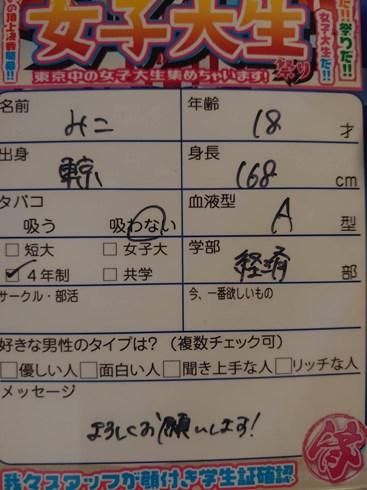 女子大生
祭り
東京中の女子大生集めちゃいます!
だ!!祭りだ!!
女子大生だ!!
名前 みこ
年齢 18 才
出身 東京
身長 168 cm
タバコ
吸う 吸わない
血液型 A 型
□ 短大 □ 女子大
☑ 4年制 □ 共学
学部 経済 部
サークル・部活
今、一番欲しいもの
好きな男性のタイプは? (複数チェック可)
□優しい人 □面白い人 □聞き上手な人 □リッチな人
メッセージ
よろしくお願いします!
我々スタッフが顔付き学生証確認